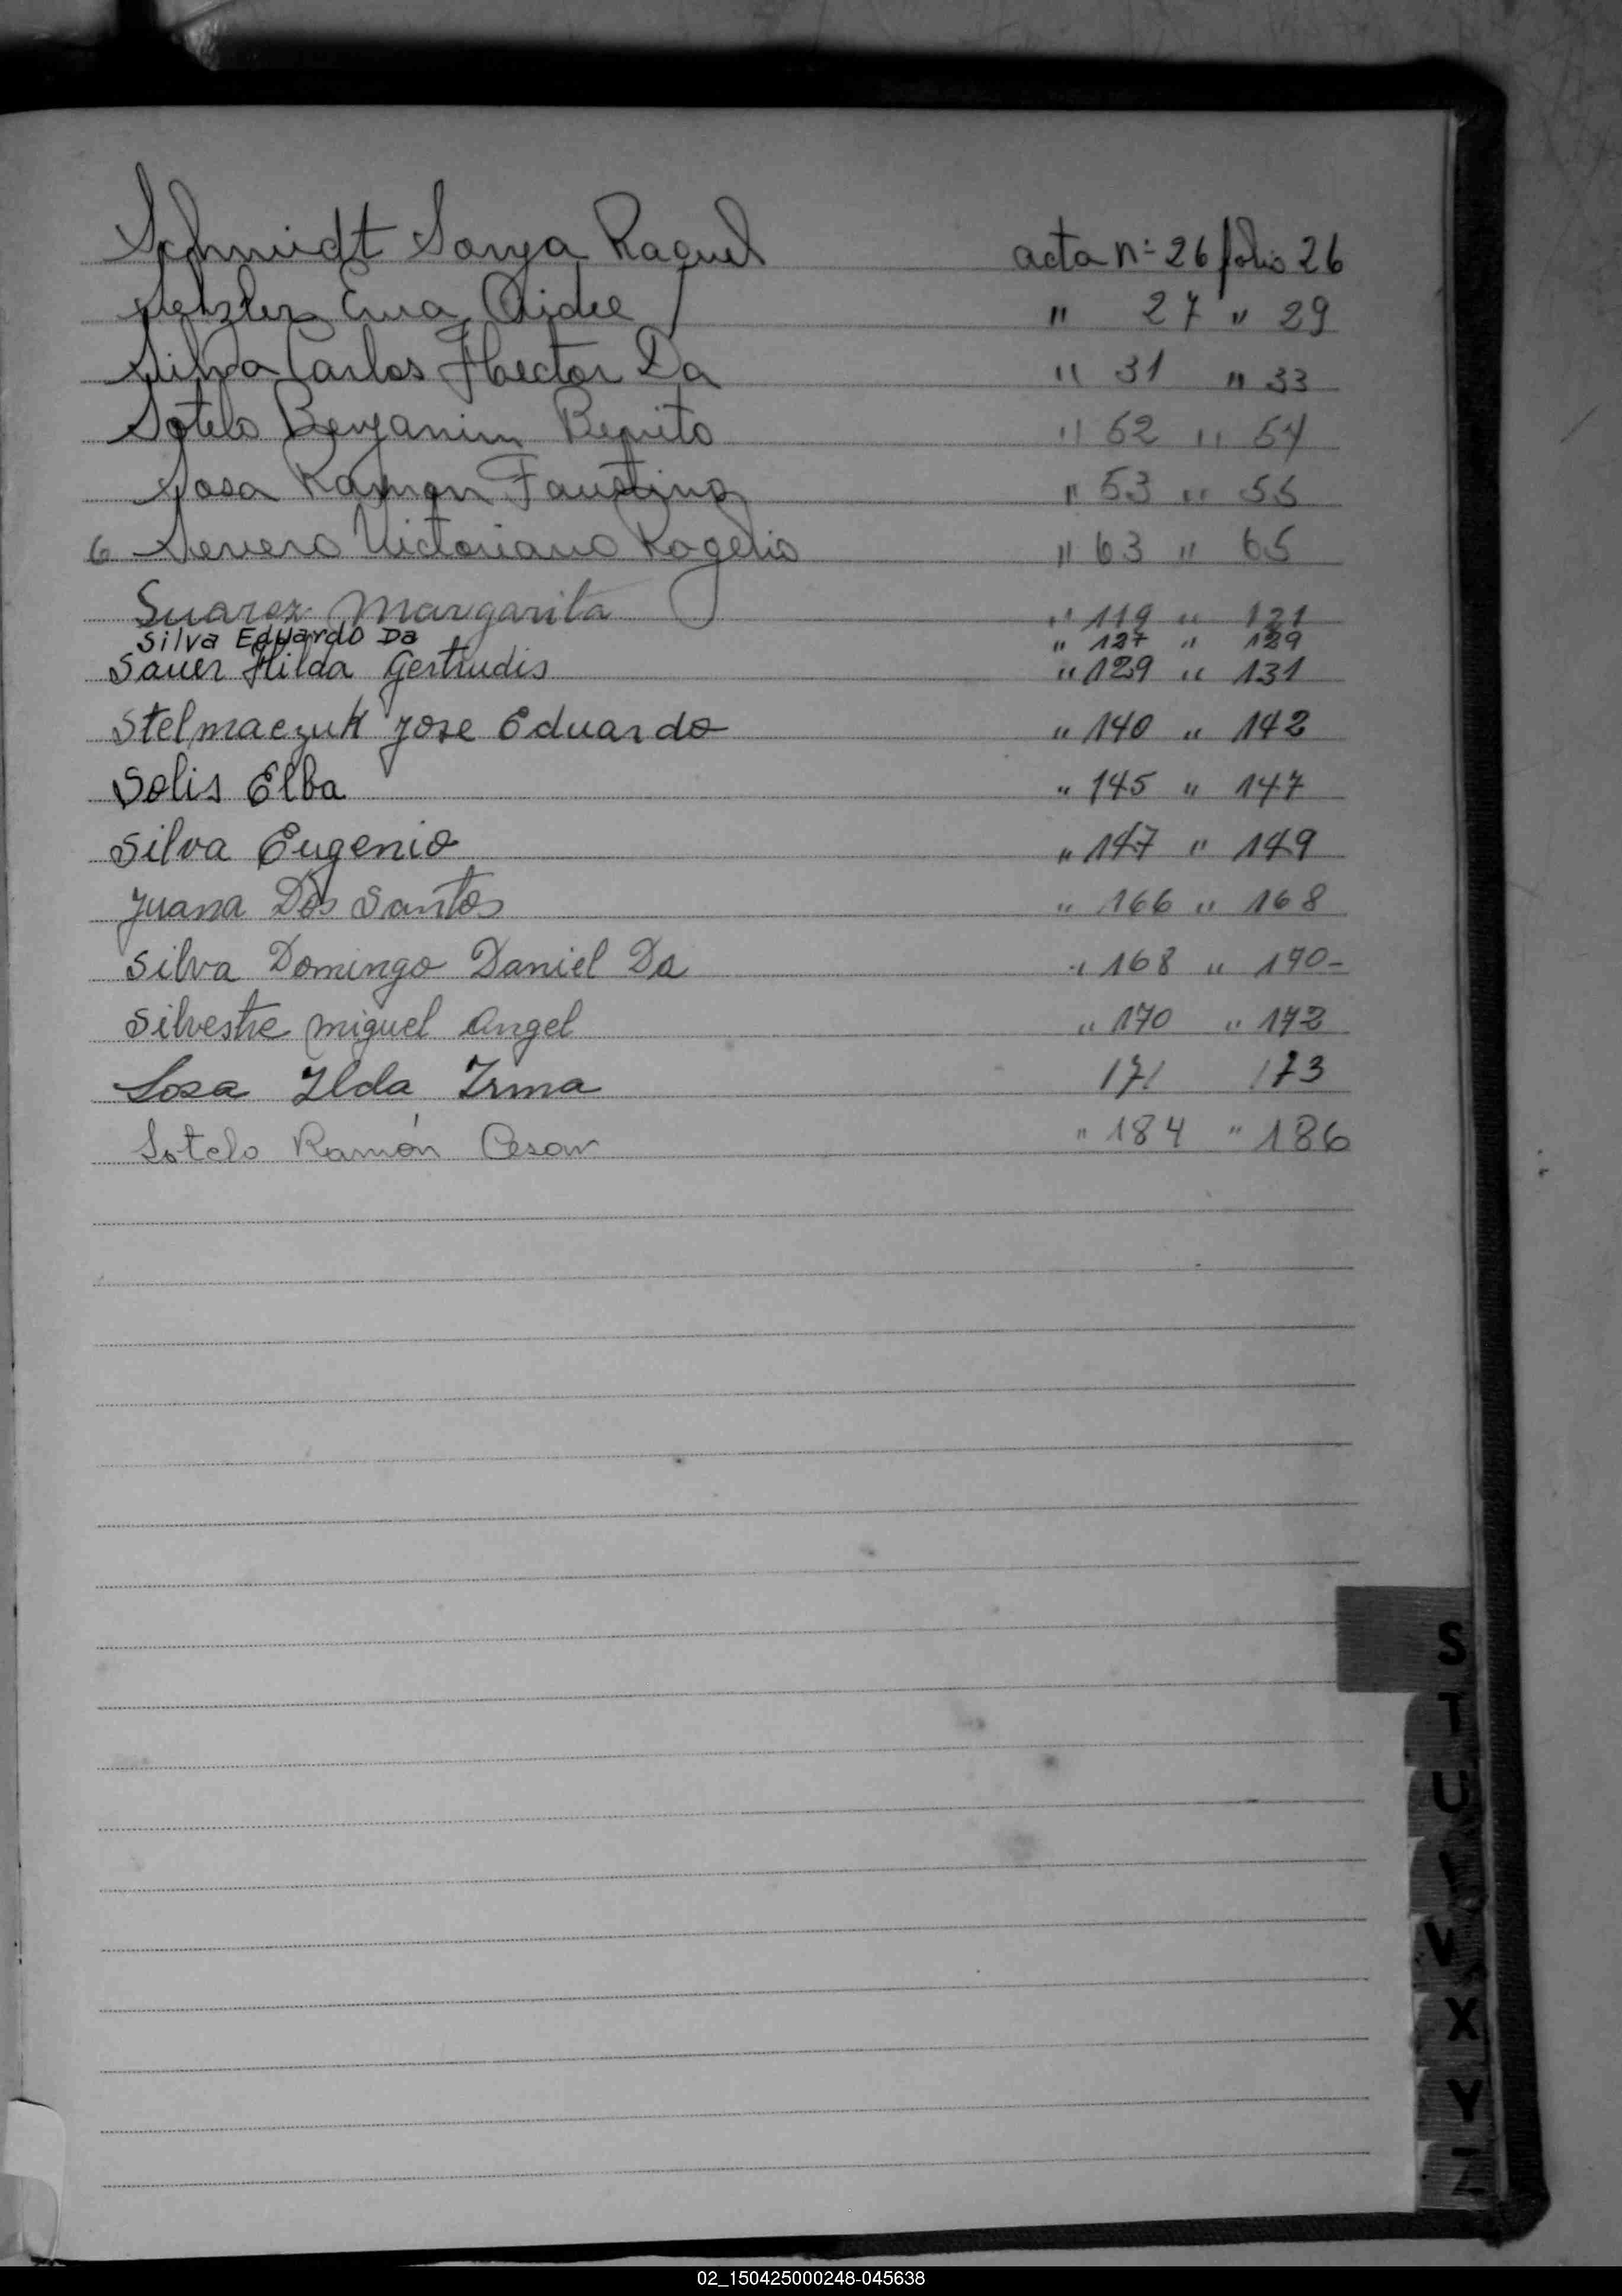 Schmidt Sonya Raquel acta nº 26 folio 26
Setzler Ema Aidee " 27 " 29
Silva Carlos Hector Da " 31 " 33
Sotelo Benjamin Benito " 52 " 54
Sosa Ramon Faustino " 53 " 55
6 Severo Victoriano Rogelio " 63 " 65
Suarez Margarita " 119 " 121
Silva Eduardo Da " 127 " 129
Sauer Hilda Gertrudis " 129 " 131
Stelmaczuk Jose Eduardo " 140 " 142
Solis Elba " 145 " 147
Silva Eugenio " 147 " 149
Juana Dos Santos " 166 " 168
Silva Domingo Daniel Da " 168 " 170-
Silvestre Miguel Angel " 170 " 172
Sosa Ilda Irma 171 173
Sotelo Ramón Cesar " 184 " 186
S
T
U
V
X
Y
Z
02_150425000248-045638